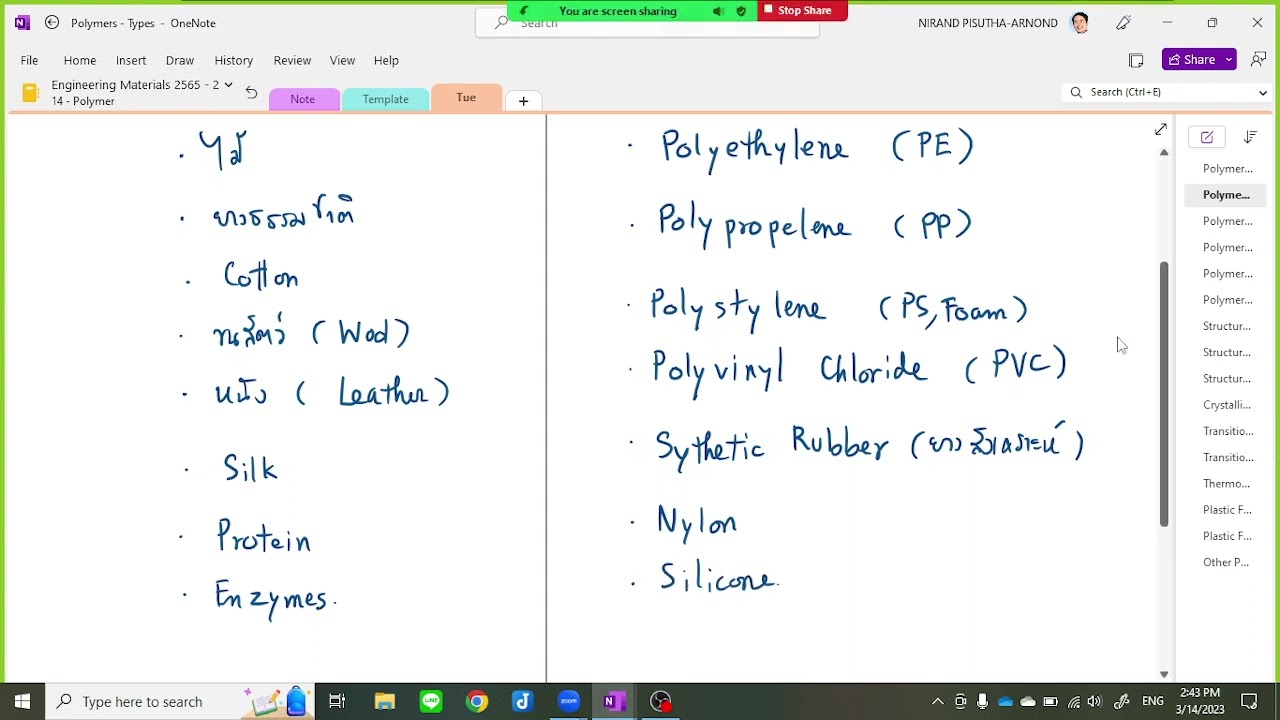 Polymers - Types - OneNote
You are screen sharing
Stop Share
Search
NIRAND PISUTHA-ARNOND
File Home Insert Draw History Review View Help
Share
Engineering Materials 2565 - 2
14 - Polymer
Note Template Tue
Search (Ctrl+E)
· ไม้
· ยางธรรมชาติ
· Cotton
· ขนสัตว์ (Wool)
· หนัง (Leather)
· Silk
· Protein
· Enzymes.
· Polyethylene (PE)
· Polypropelene (PP)
· Polystylene (PS, Foam)
· Polyvinyl Chloride (PVC)
· Sythetic Rubber (ยางสังเคราะห์)
· Nylon
· Silicone.
Polymer...
Polyme...
Polymer...
Polymer...
Polymer...
Polymer...
Structur...
Structur...
Structur...
Crystalli...
Transitio...
Transitio...
Thermo...
Plastic F...
Plastic F...
Other P...
Type here to search
ENG
2:43 PM
3/14/2023